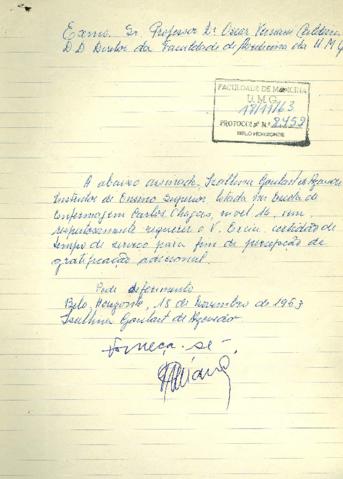 Exmo. Sr. Professor Dr. Oscar Versiani Caldeira
D.D. Diretor da Faculdade de Medicina da U.M.G
FACULDADE DE MEDICINA
U. M. G.
18/11/63
PROTOCOLO N.º 2452
BELO HORIZONTE
A abaixo assinada, Isaltina Goulart de Azevedo
Instrutor de Ensino Superior lotada na Escola de
Enfermagem Carlos Chagas, nível 16, vem
respeitosamente requerer a V. Excia. certidão de
tempo de serviço para fim de percepção de
gratificação adicional.
Pede deferimento
Belo Horizonte, 18 de Novembro de 1963
Isaltina Goulart de Azevedo
Forneça-se